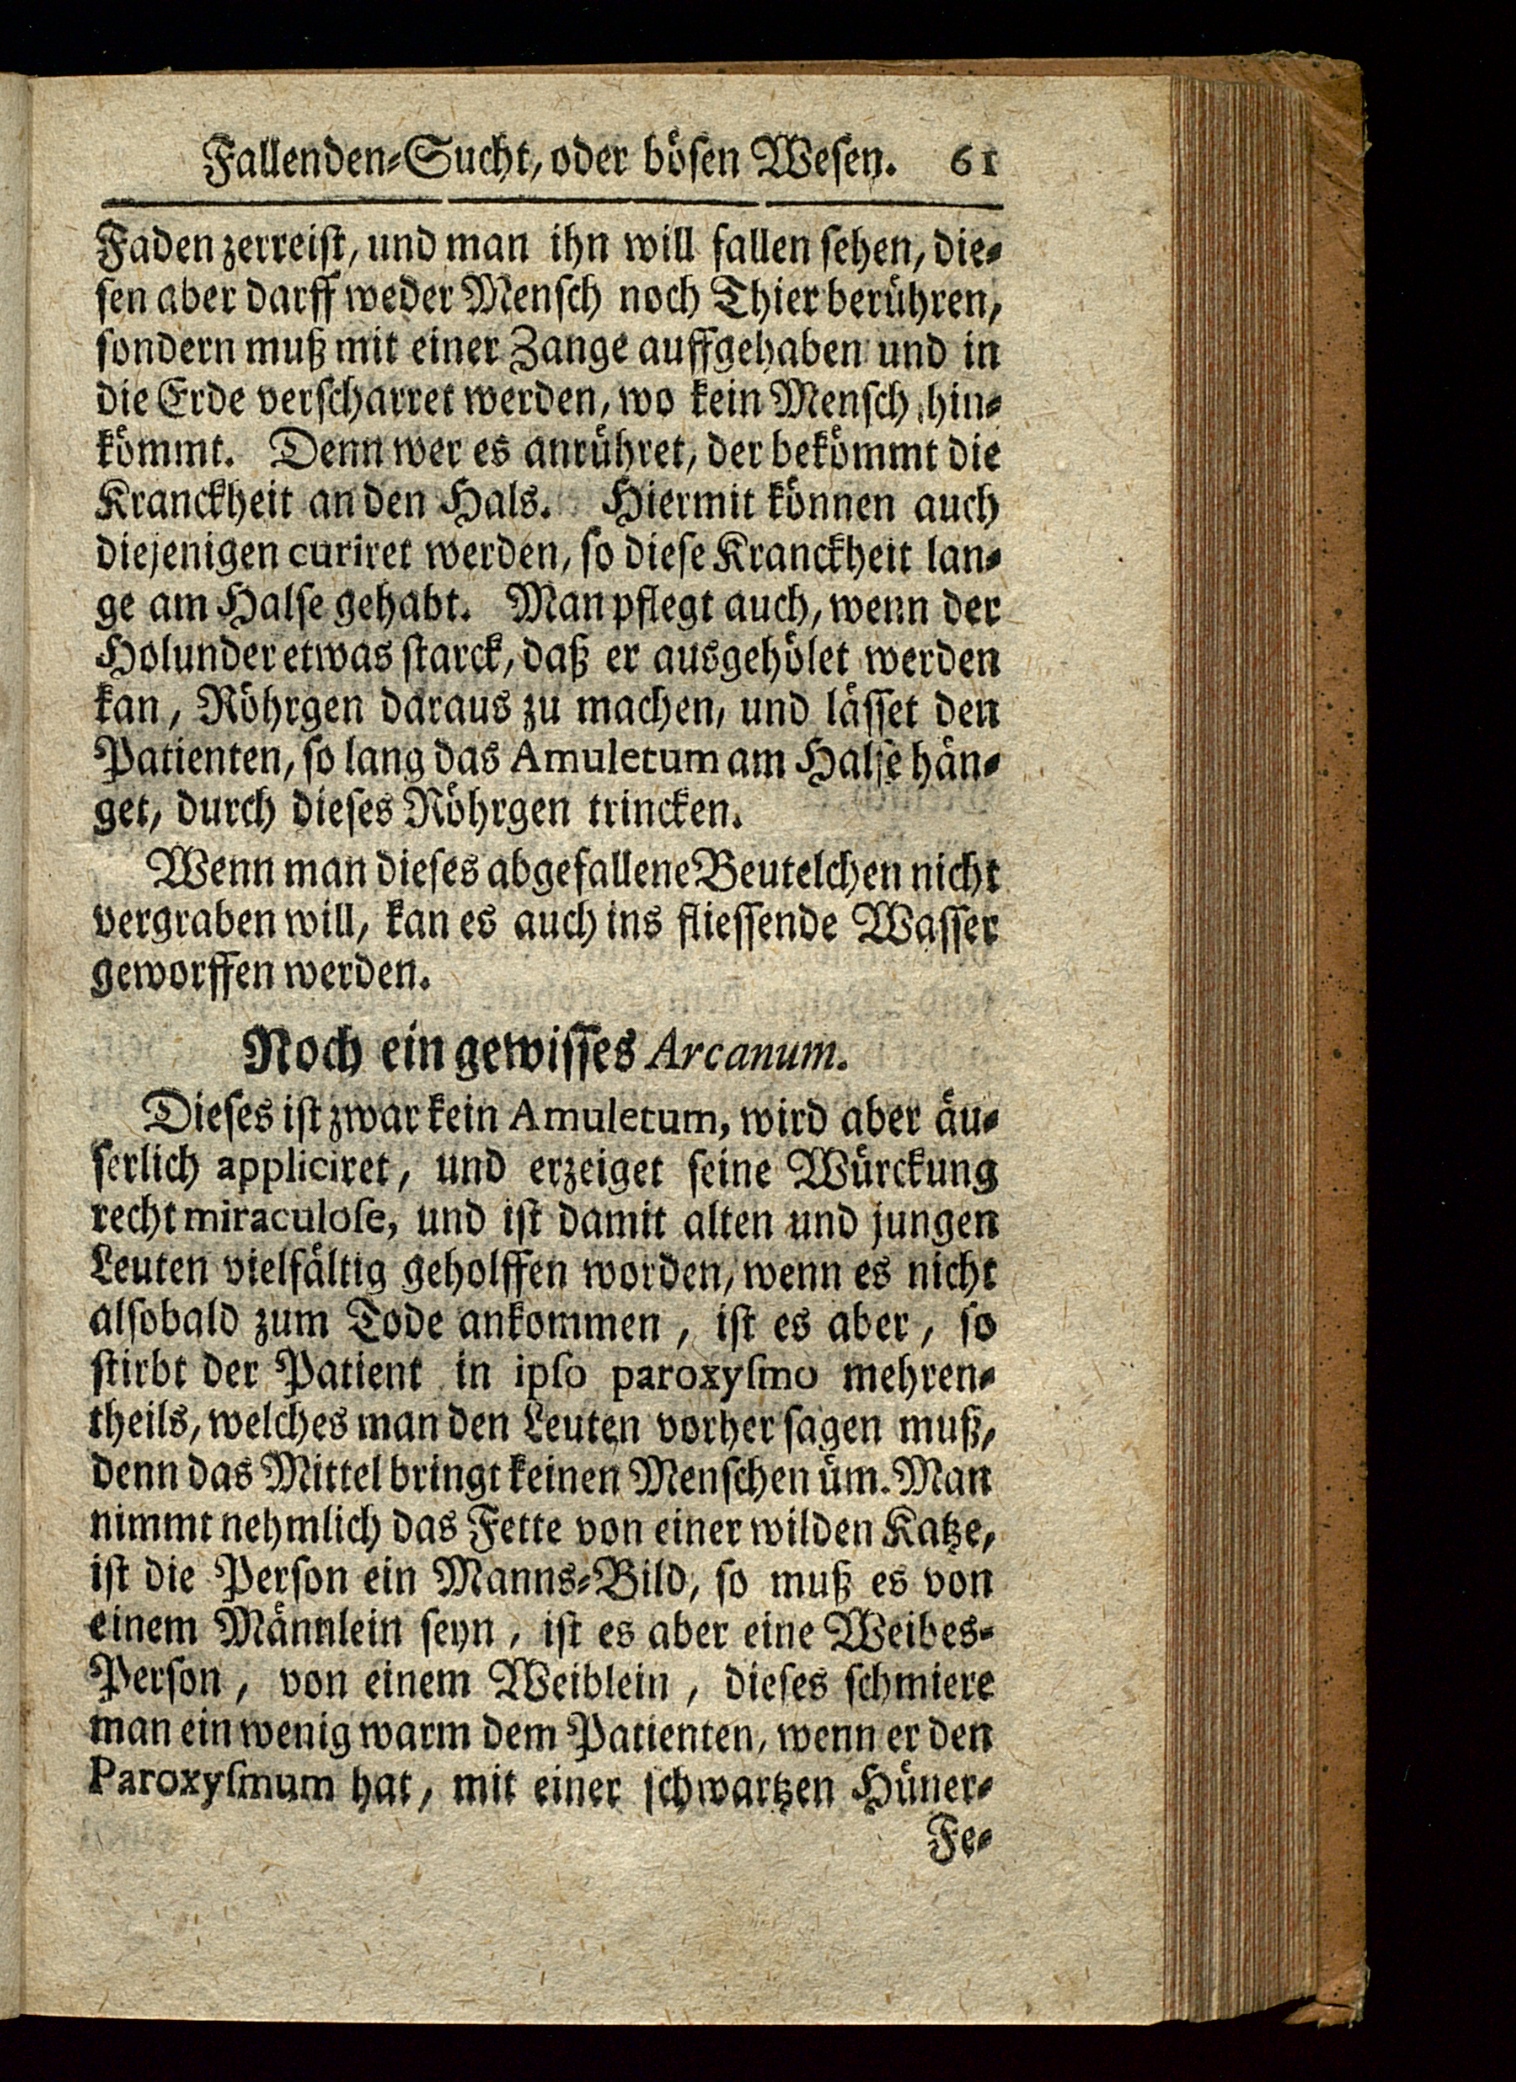 Fallenden-Sucht, oder bösen Wesen. 61
Faden zerreist, und man ihn will fallen sehen, die-
sen aber darff weder Mensch noch Thier berühren,
sondern muß mit einer Zange auffgehaben und in
die Erde verscharret werden, wo kein Mensch hin-
kömmt. Denn wer es anrühret, der bekömmt die
Kranckheit an den Hals. Hiermit können auch
diejenigen curiret werden, so diese Kranckheit lan-
ge am Halse gehabt. Man pflegt auch, wenn der
Holunder etwas starck, daß er ausgehölet werden
kan, Röhrgen daraus zu machen, und lässet den
Patienten, so lang das Amuletum am Halse hän-
get, durch dieses Röhrgen trincken.
Wenn man dieses abgefallene Beutelchen nicht
vergraben will, kan es auch ins fliessende Wasser
geworffen werden.
Noch ein gewisses Arcanum.
Dieses ist zwar kein Amuletum, wird aber äu-
serlich appliciret, und erzeiget seine Würckung
recht miraculose, und ist damit alten und jungen
Leuten vielfältig geholffen worden, wenn es nicht
alsobald zum Tode ankommen, ist es aber, so
stirbt der Patient in ipso paroxysmo mehren-
theils, welches man den Leuten vorher sagen muß,
denn das Mittel bringt keinen Menschen üm. Man
nimmt nehmlich das Fette von einer wilden Katze,
ist die Person ein Manns-Bild, so muß es von
einem Männlein seyn, ist es aber eine Weibes-
Person, von einem Weiblein, dieses schmiere
man ein wenig warm dem Patienten, wenn er den
Paroxysmum hat, mit einer schwartzen Hüner-
Fe-